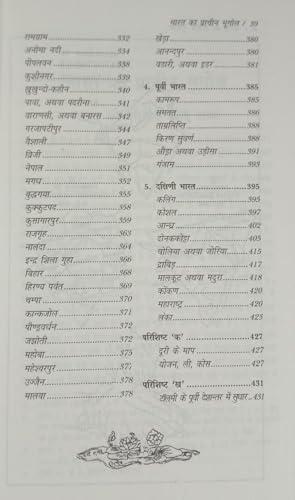 भारत का प्राचीन भूगोल / 39
रामग्राम 332
अनोमा नदी 334
पीपलवन 338
कुशीनगर 339
खुखुन्दो-कहौन 340
पावा, अथवा पदरौना 341
वाराणसी, अथवा बनारस 342
गरजापटीपुर 344
वैशाली 347
व्रिजी 349
नेपाल 351
मगध 352
बुद्धगया 355
कुक्कुटपद 358
कुसागारपुर 359
राजगृह 363
नालंदा 364
इन्द्र शिला गुहा 366
विहार 368
हिरण्य पर्वत 369
चम्पा 370
कान्कजोल 371
पौण्ड्रवर्धन 372
जझोती 372
महोबा 375
महेश्वरपुर 377
उज्जैन 378
मालवा 378
खेड़ा 380
आनन्दपुर 380
वडारी, अथवा इडर 381
4. पूर्वी भारत 385
कामरूप 385
समतत 386
ताम्रलिप्ति 388
किरण सुवर्ण 388
औड्रा अथवा उड़ीसा 391
गंजाम 393
5. दक्षिणी भारत 395
कलिंग 395
कोशल 397
आन्ध्र 402
दोनककोट्टा 405
चोलिया अथवा जोरिया 415
द्राविड़ 417
मालकूट अथवा मदुरा 418
कोंकण 420
महाराष्ट्र 420
लंका 423
परिशिष्ट 'क' 427
दूरी के माप 427
योजन, ली, कोस 427
परिशिष्ट 'ख' 431
टॉलमी के पूर्वी देशान्तर में सुधार 431